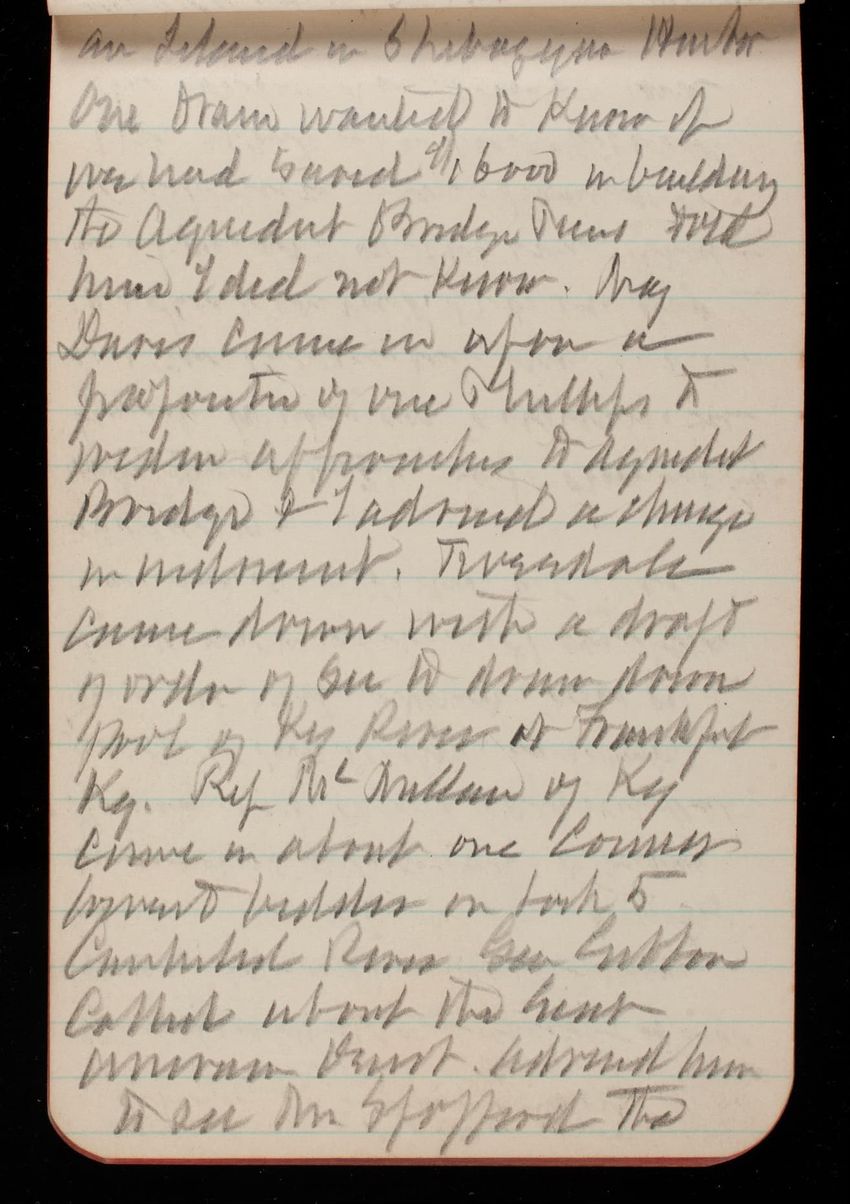 an Island in Sheboygan Harbor
One Drain wanted to know if
we had saved $1600 in building
the Aqueduct Bridge Told
him I did not know. Maj
Davis came in upon a
proposition of one Phillips to
widen approaches to Aqueduct
Bridge & I advised a change
in indorsement. Truesdale
came down with a draft
of order of Sec to draw down
pool of Ky River at Frankfort
Ky. Rep McMullan of Ky
came in about one Connor
lowest bidder on lock 5
Cumberland River Geo Gibbon
called about the Great
American Desert. Advised him
to see Mr Spofford The